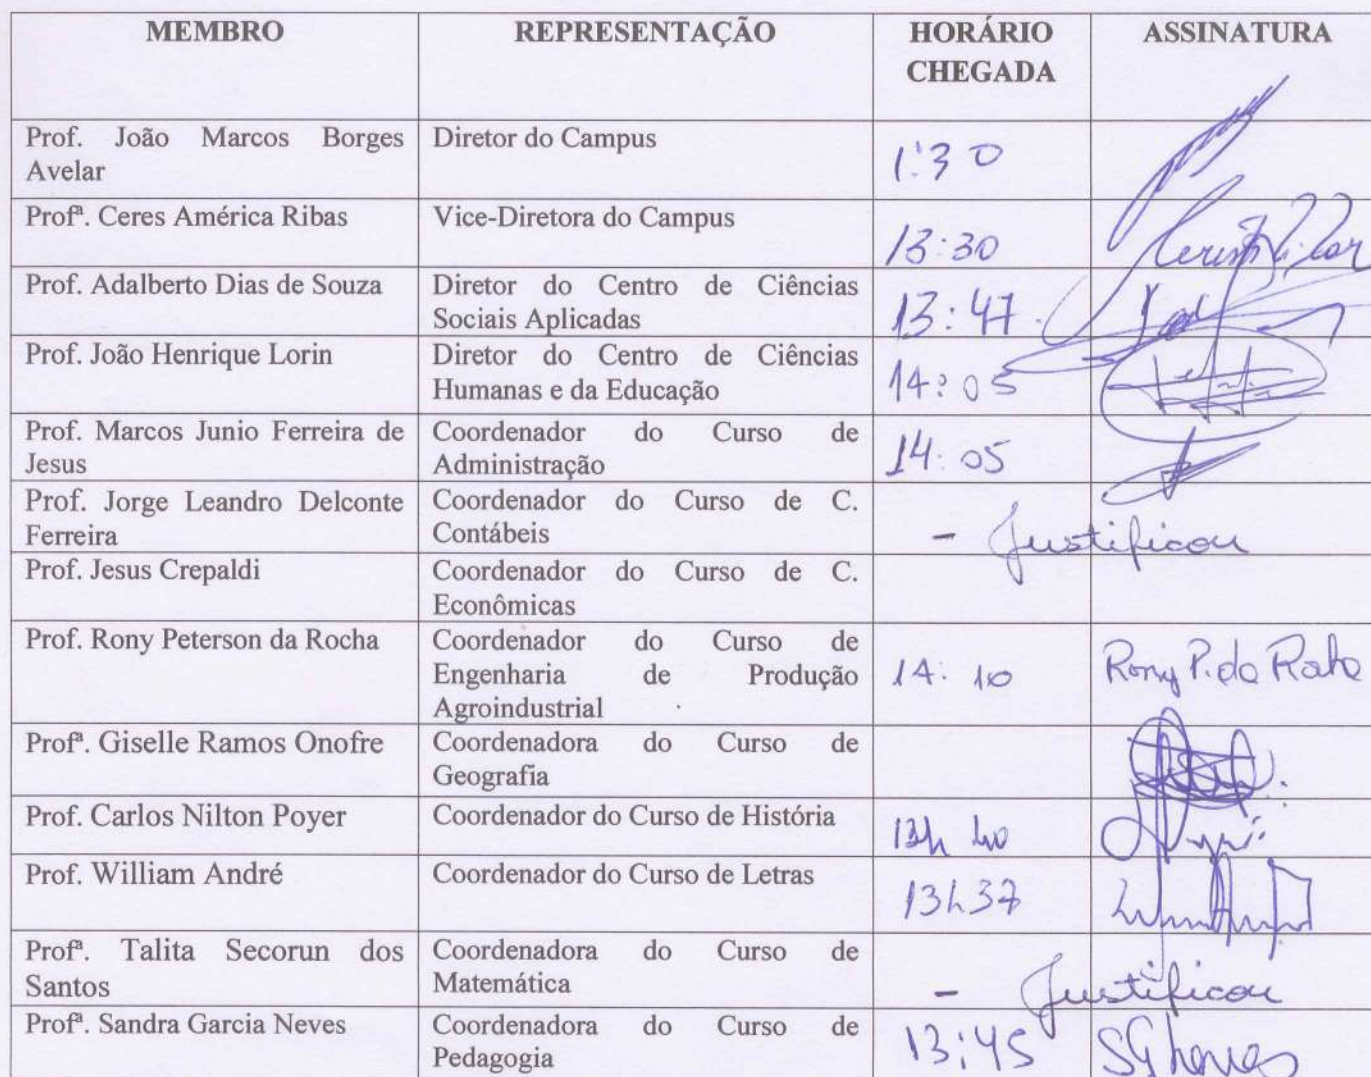 MEMBRO REPRESENTAÇÃO HORÁRIO CHEGADA ASSINATURA
Prof. João Marcos Borges Avelar Diretor do Campus 1:30
Profª. Ceres América Ribas Vice-Diretora do Campus 13:30
Prof. Adalberto Dias de Souza Diretor do Centro de Ciências Sociais Aplicadas 13:47
Prof. João Henrique Lorin Diretor do Centro de Ciências Humanas e da Educação 14:05
Prof. Marcos Junio Ferreira de Jesus Coordenador do Curso de Administração 14:05
Prof. Jorge Leandro Delconte Ferreira Coordenador do Curso de C. Contábeis - Justificou
Prof. Jesus Crepaldi Coordenador do Curso de C. Econômicas
Prof. Rony Peterson da Rocha Coordenador do Curso de Engenharia de Produção Agroindustrial 14:10 Rony P. da Rocha
Profª. Giselle Ramos Onofre Coordenadora do Curso de Geografia
Prof. Carlos Nilton Poyer Coordenador do Curso de História 13h 40
Prof. William André Coordenador do Curso de Letras 13h37
Profª. Talita Secorun dos Santos Coordenadora do Curso de Matemática - Justificou
Profª. Sandra Garcia Neves Coordenadora do Curso de Pedagogia 13:45 SGNeves